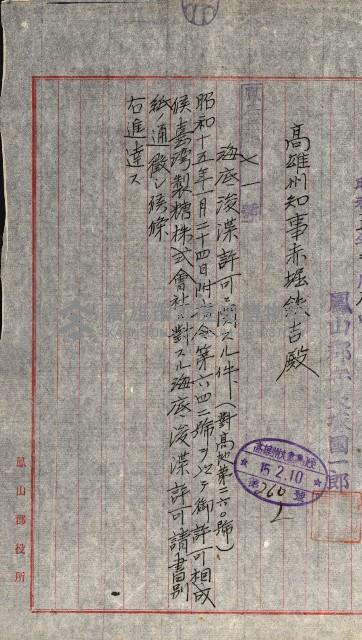 高雄州知事赤堀鉄吉殿
海底浚渫許可ニ関スル件(對高 第二六〇號)
昭和十五年一月二十四日附指令第六四二號ヲ以テ御許可相成
候臺灣製糖株式會社ニ對スル海底浚渫許可請書別
紙ノ通徴シ候條
右進達ス
15.2.10
第260號
鳳山郡役所